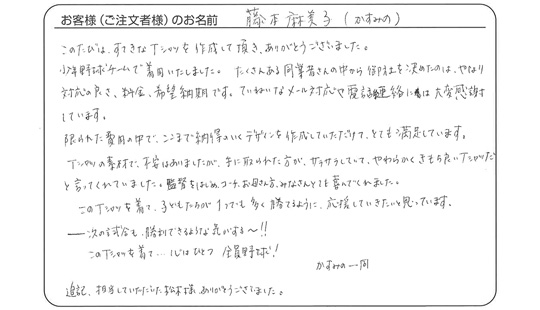 お客様（ご注文者様）のお名前 藤本麻美子（かすみの）
このたびは、すてきなTシャツを作成して頂き、ありがとうございました。
少年野球チームで着用いたしました。たくさんある同業者さんの中から御社を決めたのは、やはり
対応の良さ、料金、希望納期です。ていねいなメール対応や電話連絡には大変感謝
しています。
限られた費用の中で、ここまで納得のいくデザインを作成していただけて、とても満足しています。
Tシャツの素材で、不安はありましたが、手に取られた方が、サラサラしていて、やわらかくきもち良いTシャツだ
と言ってくれていました。監督をはじめ、コーチ、お母さん方、みなさんとても喜んでくれました。
このTシャツを着て、子どもたちが1つでも多く勝てるように、応援していきたいと思っています。
――次の試合も、勝利できるような気がする〜!!
このTシャツを着て…心はひとつ 全員野球!
かすみの一同
追記、担当していただいた松本様、ありがとうございました。